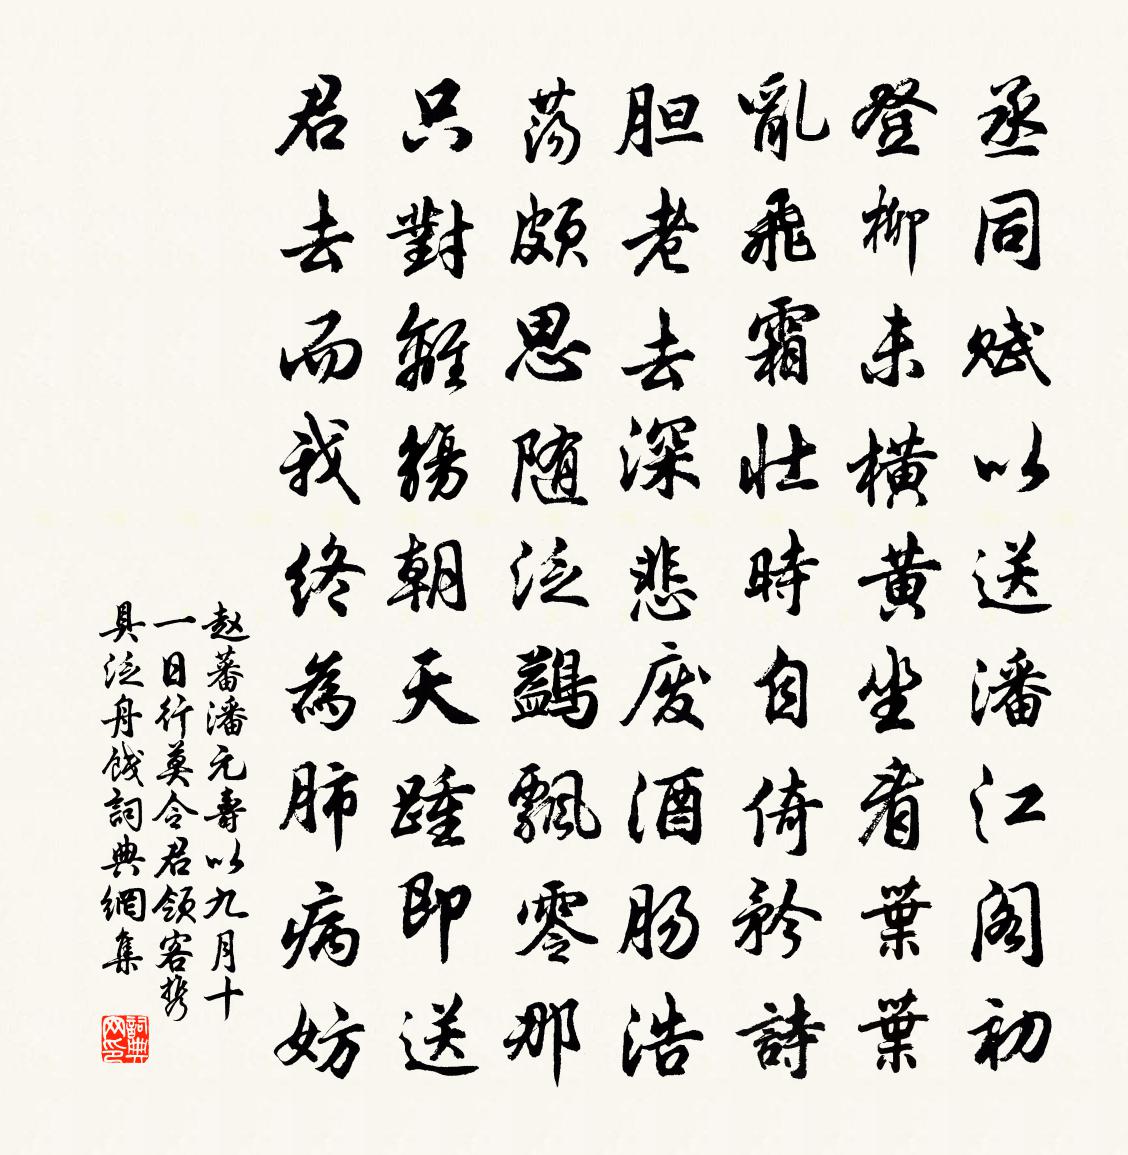 丞同赋以送潘江阁初
登柳未横黄坐看葉葉
亂飛霜壮時自倚矜詩
胆老去深悲废酒肠浩
荡颇思随泛鷁飄零那
只對離觴朝天踵即送
君去而我终為肺病妨
赵蕃潘元壽以九月十
一日行莫令君领客携
具泛舟餞詞典網集
詞典